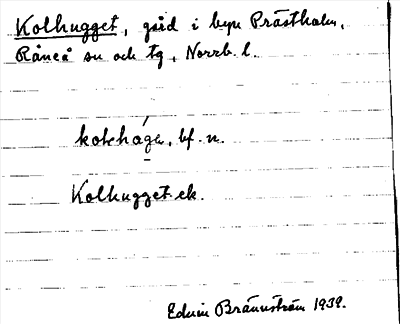 Kolhugget, gård i byn Prästholm,
Råneå sn och tg, Norrb. l.
kolhógə, bf. n.
Kolhugget ek.
Edvin Brännström 1939.